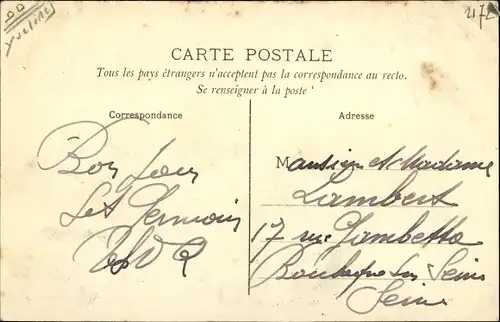 Yvelines
2172
CARTE POSTALE
Tous les pays étrangers n'acceptent pas la correspondance au recto.
Se renseigner à la poste
Correspondance
Adresse
Bonjour
St Germain
Monsieur et Madame
Lambert
17 rue Gambetta
Boulogne sur Seine
Seine